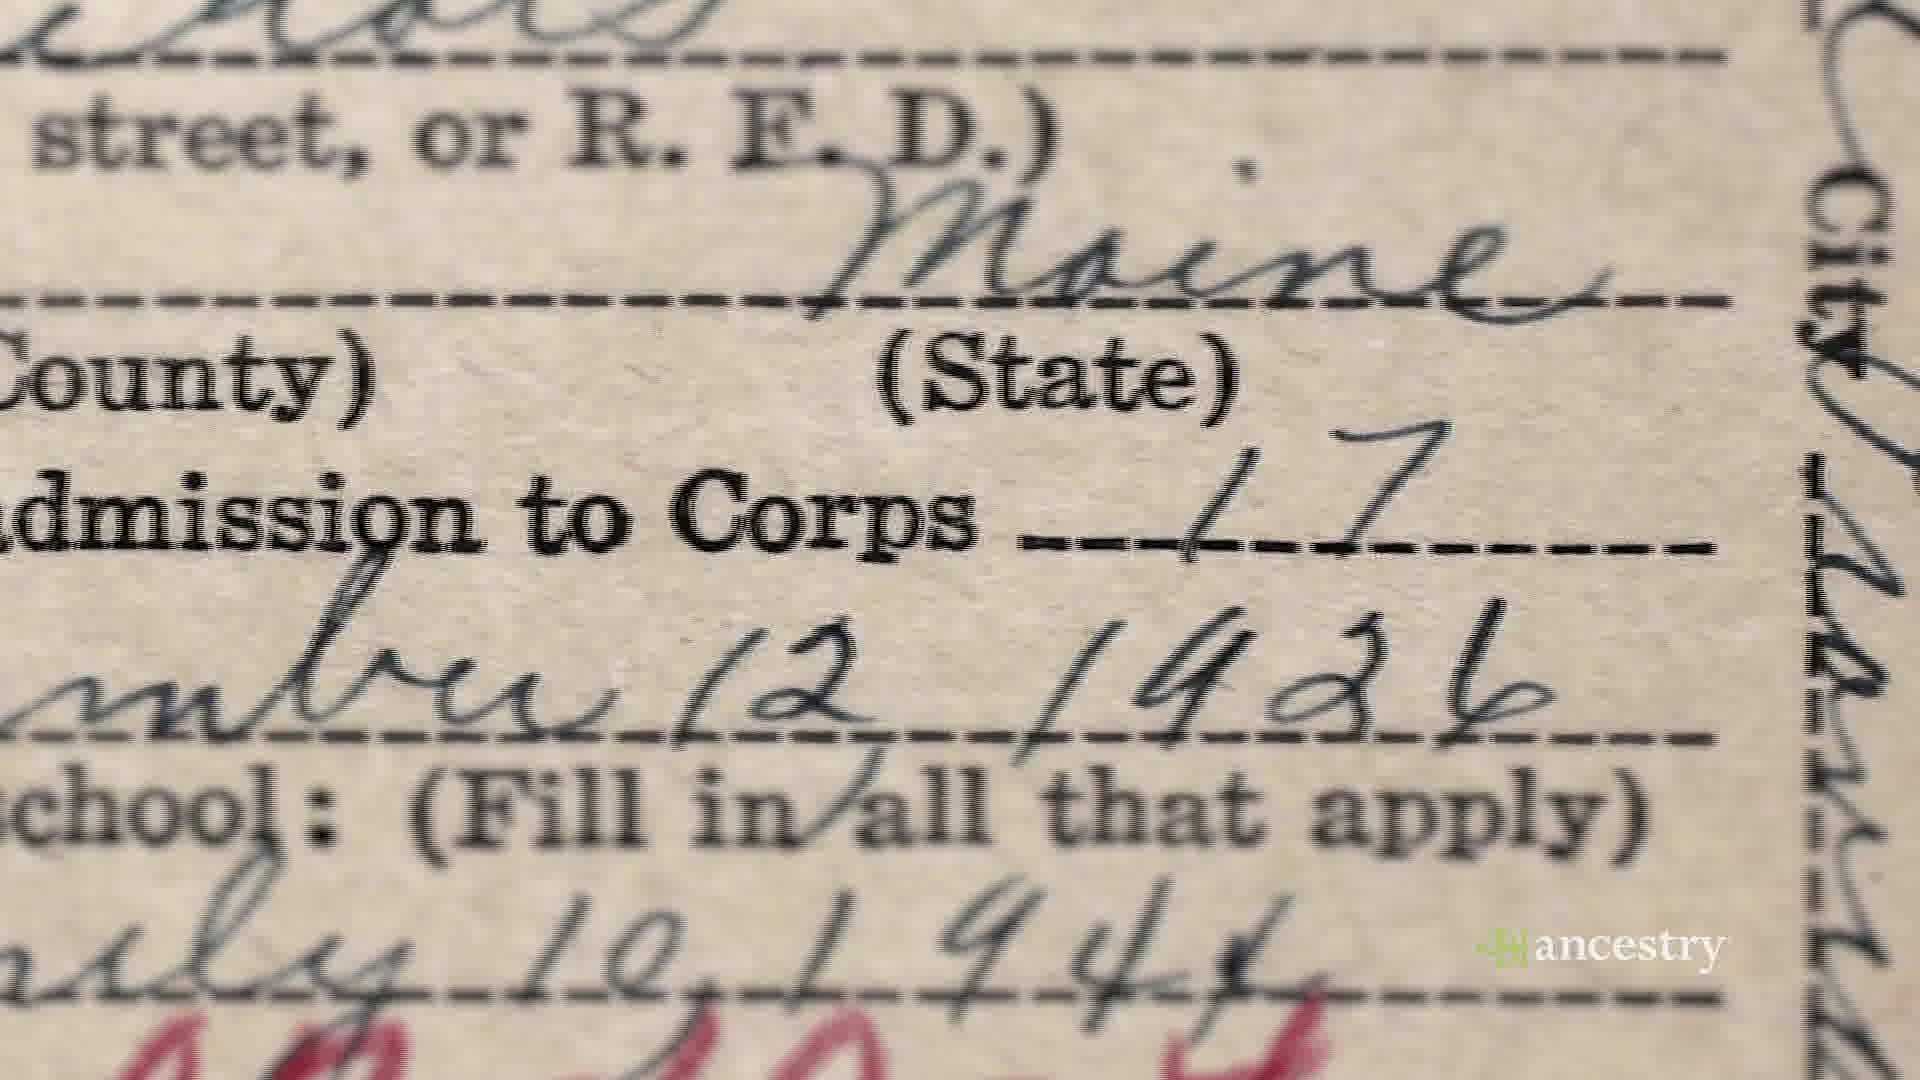 street, or R. F. D.)
Maine
County) (State)
admission to Corps 17
mber 12, 1926
school: (Fill in all that apply)
July 10, 1944
City
ancestry